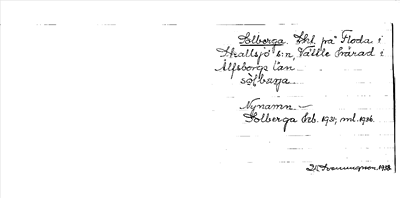 Solberga. Lht. på Floda i
Skallsjö s:n, Vättle härad i
Älfsborgs län
sòlbærja
Nynamn. –
Solberga Jrb. 1931, ml. 1936.
1938